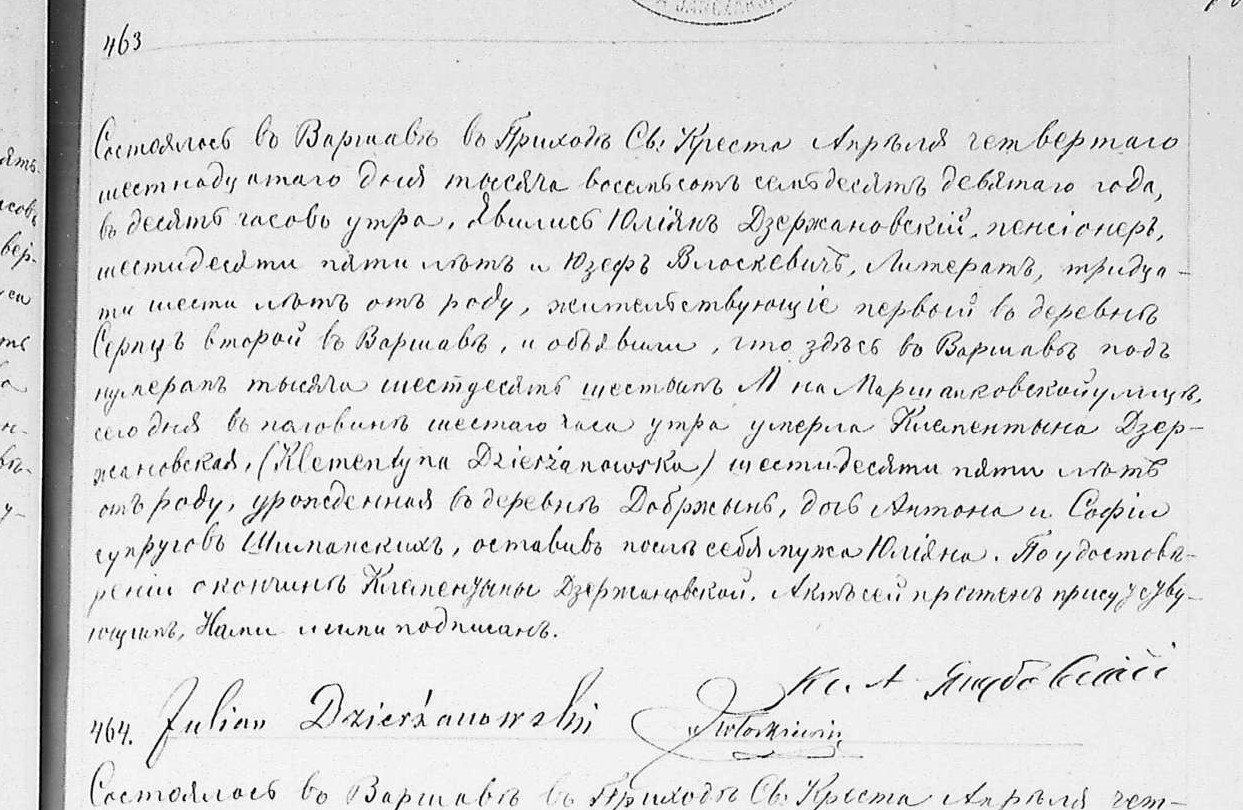 463
Состоялось въ Варшавѣ въ Приходѣ Св. Креста Апрѣля четвертаго
шестнадцатаго дня тысяча восемьсотъ семьдесятъ девятаго года,
въ десять часовъ утра. Явились Юліянъ Дзержановскій, пенсіонеръ,
шестидесяти пяти лѣтъ и Юзефъ Влоскевичъ, Литератъ, тридца-
ти шести лѣтъ отъ роду, жительствующіе первый въ деревнѣ
второй въ Варшавѣ, и объявили, что здѣсь въ Варшавѣ подъ
нумеромъ тысяча шестдесятъ шестымъ М на Маршалковской улицѣ,
сего дня въ половинѣ шестаго часа утра умерла Клементына Дзер-
жановская, (Klementyna Dzierżanowska) шестидесяти пяти лѣтъ
отъ роду, урожденная въ деревнѣ Добржынь, дочь Антона и Софіи
супруговъ Шиманскихъ, оставивъ послѣ себя мужа Юліяна. По удостовѣ-
реніи о кончинѣ Клементыны Дзержановской. Актъ сей прочтенъ присутству-
ющимъ, Нами и ими подписанъ.
Кс. А
464. Julian Dzierżanowski
Состоялось въ Варшавѣ въ Приходѣ Св. Креста Апрѣля чет-